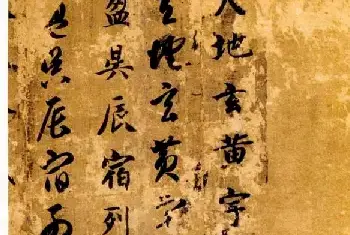 天地玄黄宇
地玄黄宇
盈昃辰宿列
昃辰宿列